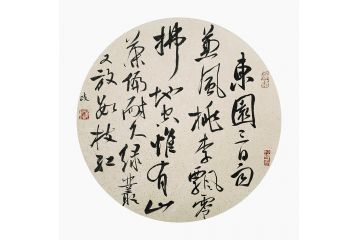 東園三日雨
兼風桃李飄零
掃地空惟有山
茶偏耐久綠叢
又放數枝紅